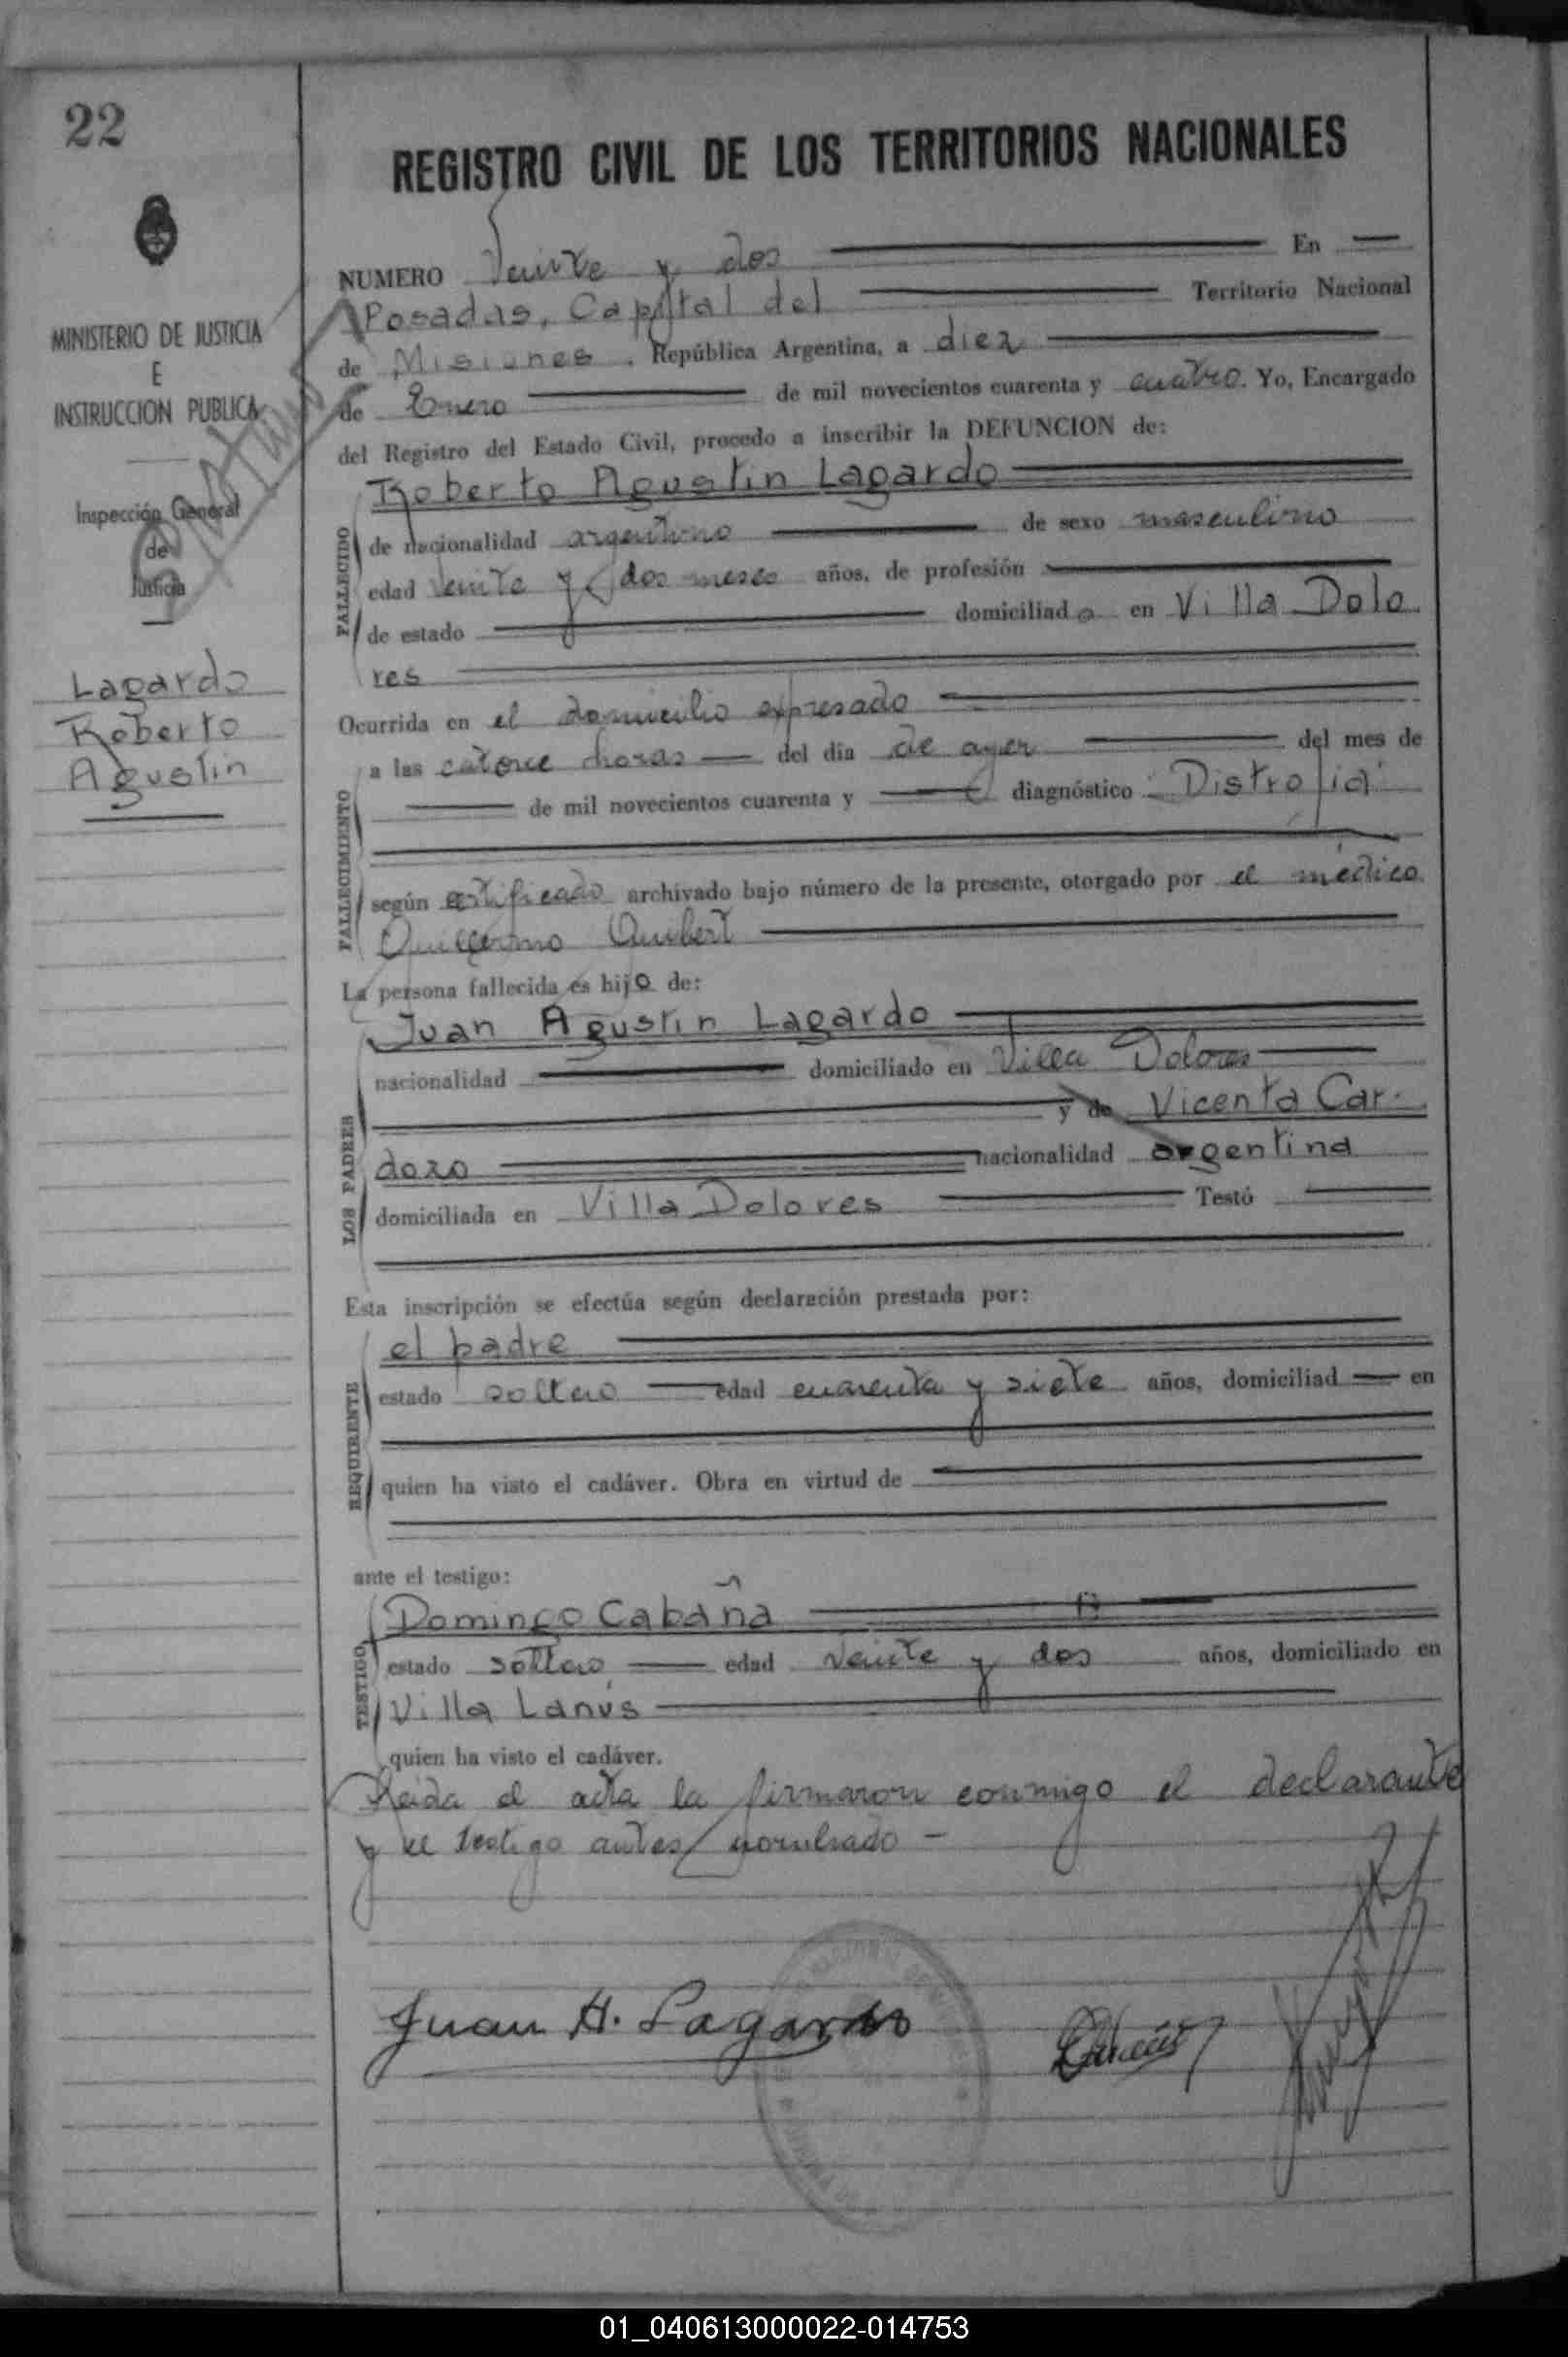 22
REGISTRO CIVIL DE LOS TERRITORIOS NACIONALES
MINISTERIO DE JUSTICIA
E
INSTRUCCION PUBLICA
Inspección General
de
Justicia
Lagardo
Roberto
Agustin
NUMERO Veinte y dos En
Posadas, Capital del Territorio Nacional
de Misiones. República Argentina, a diez
de Enero de mil novecientos cuarenta y cuatro. Yo, Encargado
del Registro del Estado Civil, procedo a inscribir la DEFUNCION de:
Roberto Agustin Lagardo
FALLECIDO
de nacionalidad argentino de sexo masculino
edad veinte y dos meses años, de profesión
de estado domiciliado en Villa Dolo
res
Ocurrida en el domicilio expresado
a las catorce horas del día de ayer del mes de
FALLECIMIENTO
de mil novecientos cuarenta y diagnóstico: Distrofia
según certificado archivado bajo número de la presente, otorgado por el médico
Guillermo
La persona fallecida es hijo de:
Juan Agustin Lagardo
LOS PADRES
nacionalidad domiciliado en Villa Dolores
y de Vicenta Car-
dozo nacionalidad argentina
domiciliada en Villa Dolores Testó
Esta inscripción se efectúa según declaración prestada por:
el padre
REQUIRENTE
estado soltero edad cuarenta y siete años, domiciliad en
quien ha visto el cadáver. Obra en virtud de
ante el testigo:
Domingo Cabaña
TESTIGO
estado soltero edad veinte y dos años, domiciliado en
Villa Lanús
quien ha visto el cadáver.
Leida el acta la firmaron conmigo el declarante
y el testigo antes nombrado -
Juan A. Lagardo
01_040613000022-014753